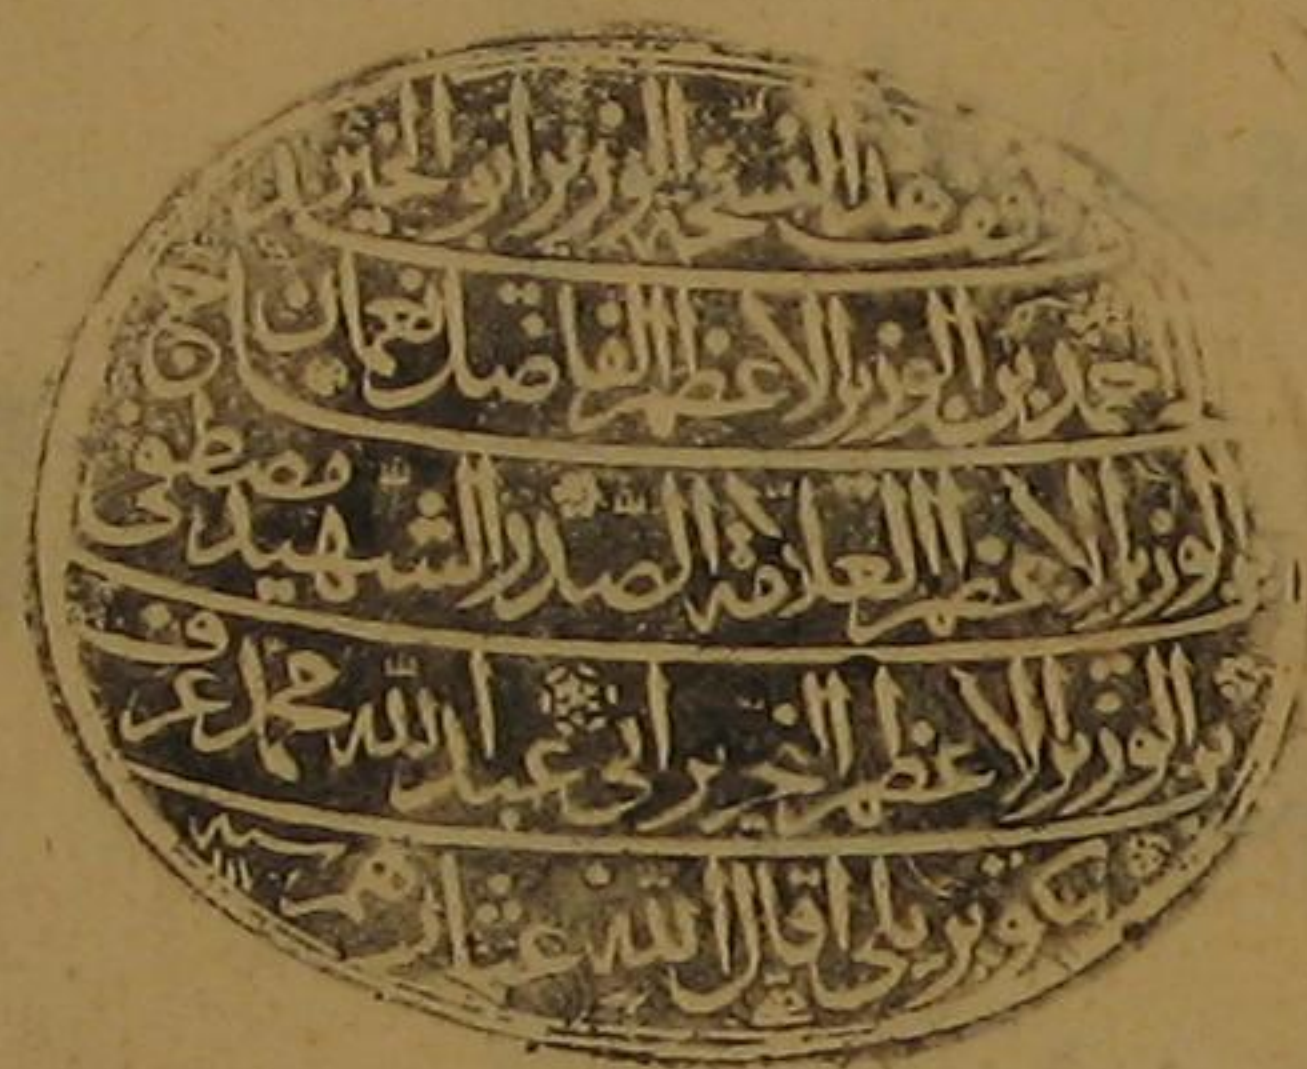 وقف هذا النسخة الوزير ابو الخير
احمد بن الوزير الاعظم الفاضل نعمان
ابن الوزير الاعظم العلامة الصدر الشهيد مصطفى
بن الوزير الاعظم النحرير ابى عبد الله محمد عرف
بكوپريلى اقال الله عثارهم سنه